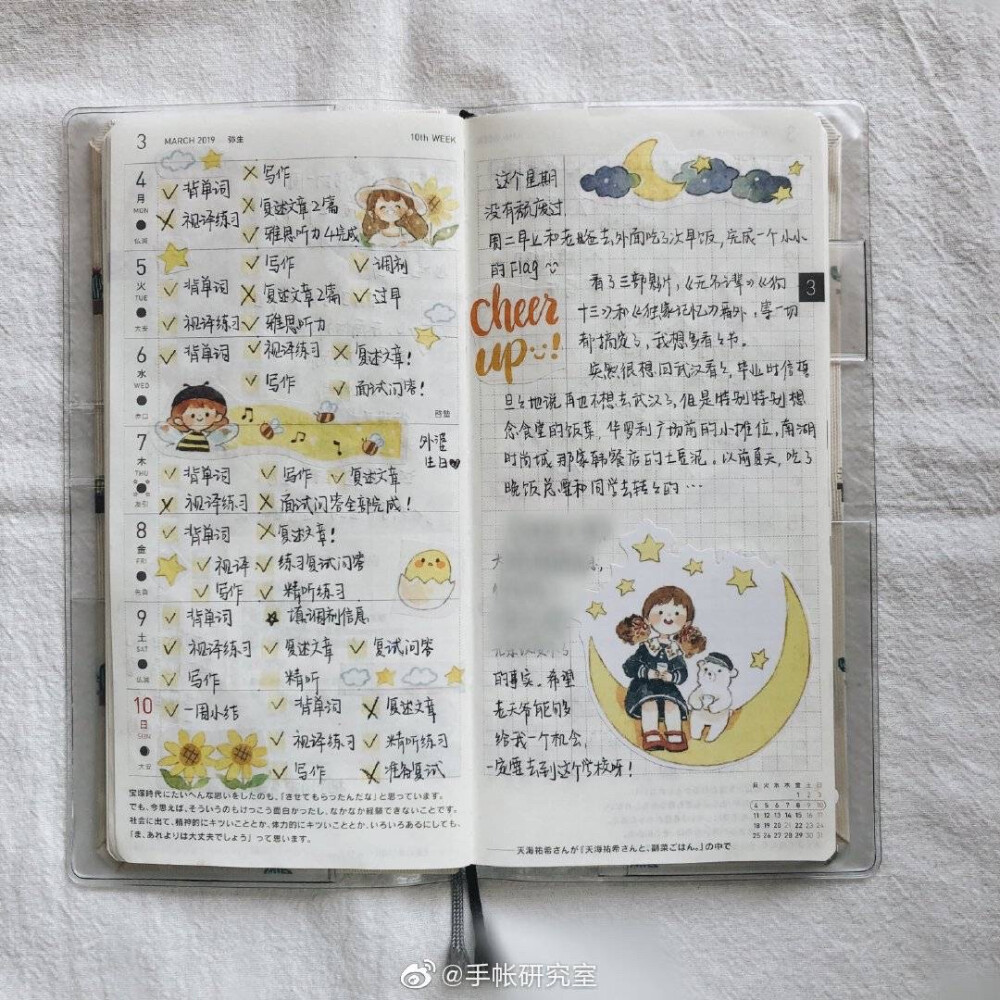 3 MARCH 2019 弥生 10th WEEK
4 月 MON 仏滅
✓背单词 ×写作
×视译练习 ×复述文章2篇
✓雅思听力4完成
5 火 TUE 大安
✓写作 ✓调剂
✓背单词 ×复述文章2篇 ✓过早
✓视译练习 ✓雅思听力
6 水 WED 赤口
✓背单词 ✓视译练习 ×复述文章!
✓写作 ✓面试问答!
啓蟄
7 木 THU 友引
外婆
生日
✓背单词 ✓写作 ✓复述文章
×视译练习 ×面试问答全部完成!
8 金 FRI 先負
✓背单词 ×复述文章!
✓视译 ✓练习复试问答
✓写作 ✓精听练习
9 土 SAT 仏滅
✓背单词 填调剂信息
✓视译练习 ✓复述文章 ✓复试问答
✓写作 精听
10 日 SUN 大安
✓一周小结 ✓背单词 ×复述文章
✓视译练习 ✓精听练习
✓写作 ×准备复试
宝塚時代にたいへんな思いをしたのも、「させてもらったんだな」と思っています。
でも、今思えば、そういうのもけっこう面白かったし、なかなか経験できないことです。
社会に出て、精神的にキツいこととか、体力的にキツいこととか、いろいろあるにしても、
「ま、あれよりは大丈夫でしょう」って思います。
这个星期
没有颓废过
周二早上和老爸去外面吃了次早饭,完成一个小小
的Flag
cheer
up!
看了三部影片,《无名之辈》《狗
十三》和《独家记忆》番外,等一切
都搞定了,我想多看看书。
突然很想回武汉看看,毕业时信誓
旦旦地说再也不想去武汉了,但是特别特别想
念食堂的饭菜,华罗利广场前的小摊位,南湖
时尚城那家韩餐店的土豆泥。以前夏天,吃了
晚饭总要和同学去转转的…
3
的事实。希望
老天爷能够
给我一个机会,
一定要去到这个学校呀!
月 火 水 木 金 土 日
1 2 3
4 5 6 7 8 9 10
11 12 13 14 15 16 17
18 19 20 21 22 23 24
25 26 27 28 29 30 31
天海祐希さんが『天海祐希さんと、副菜ごはん。』の中で
@手帐研究室